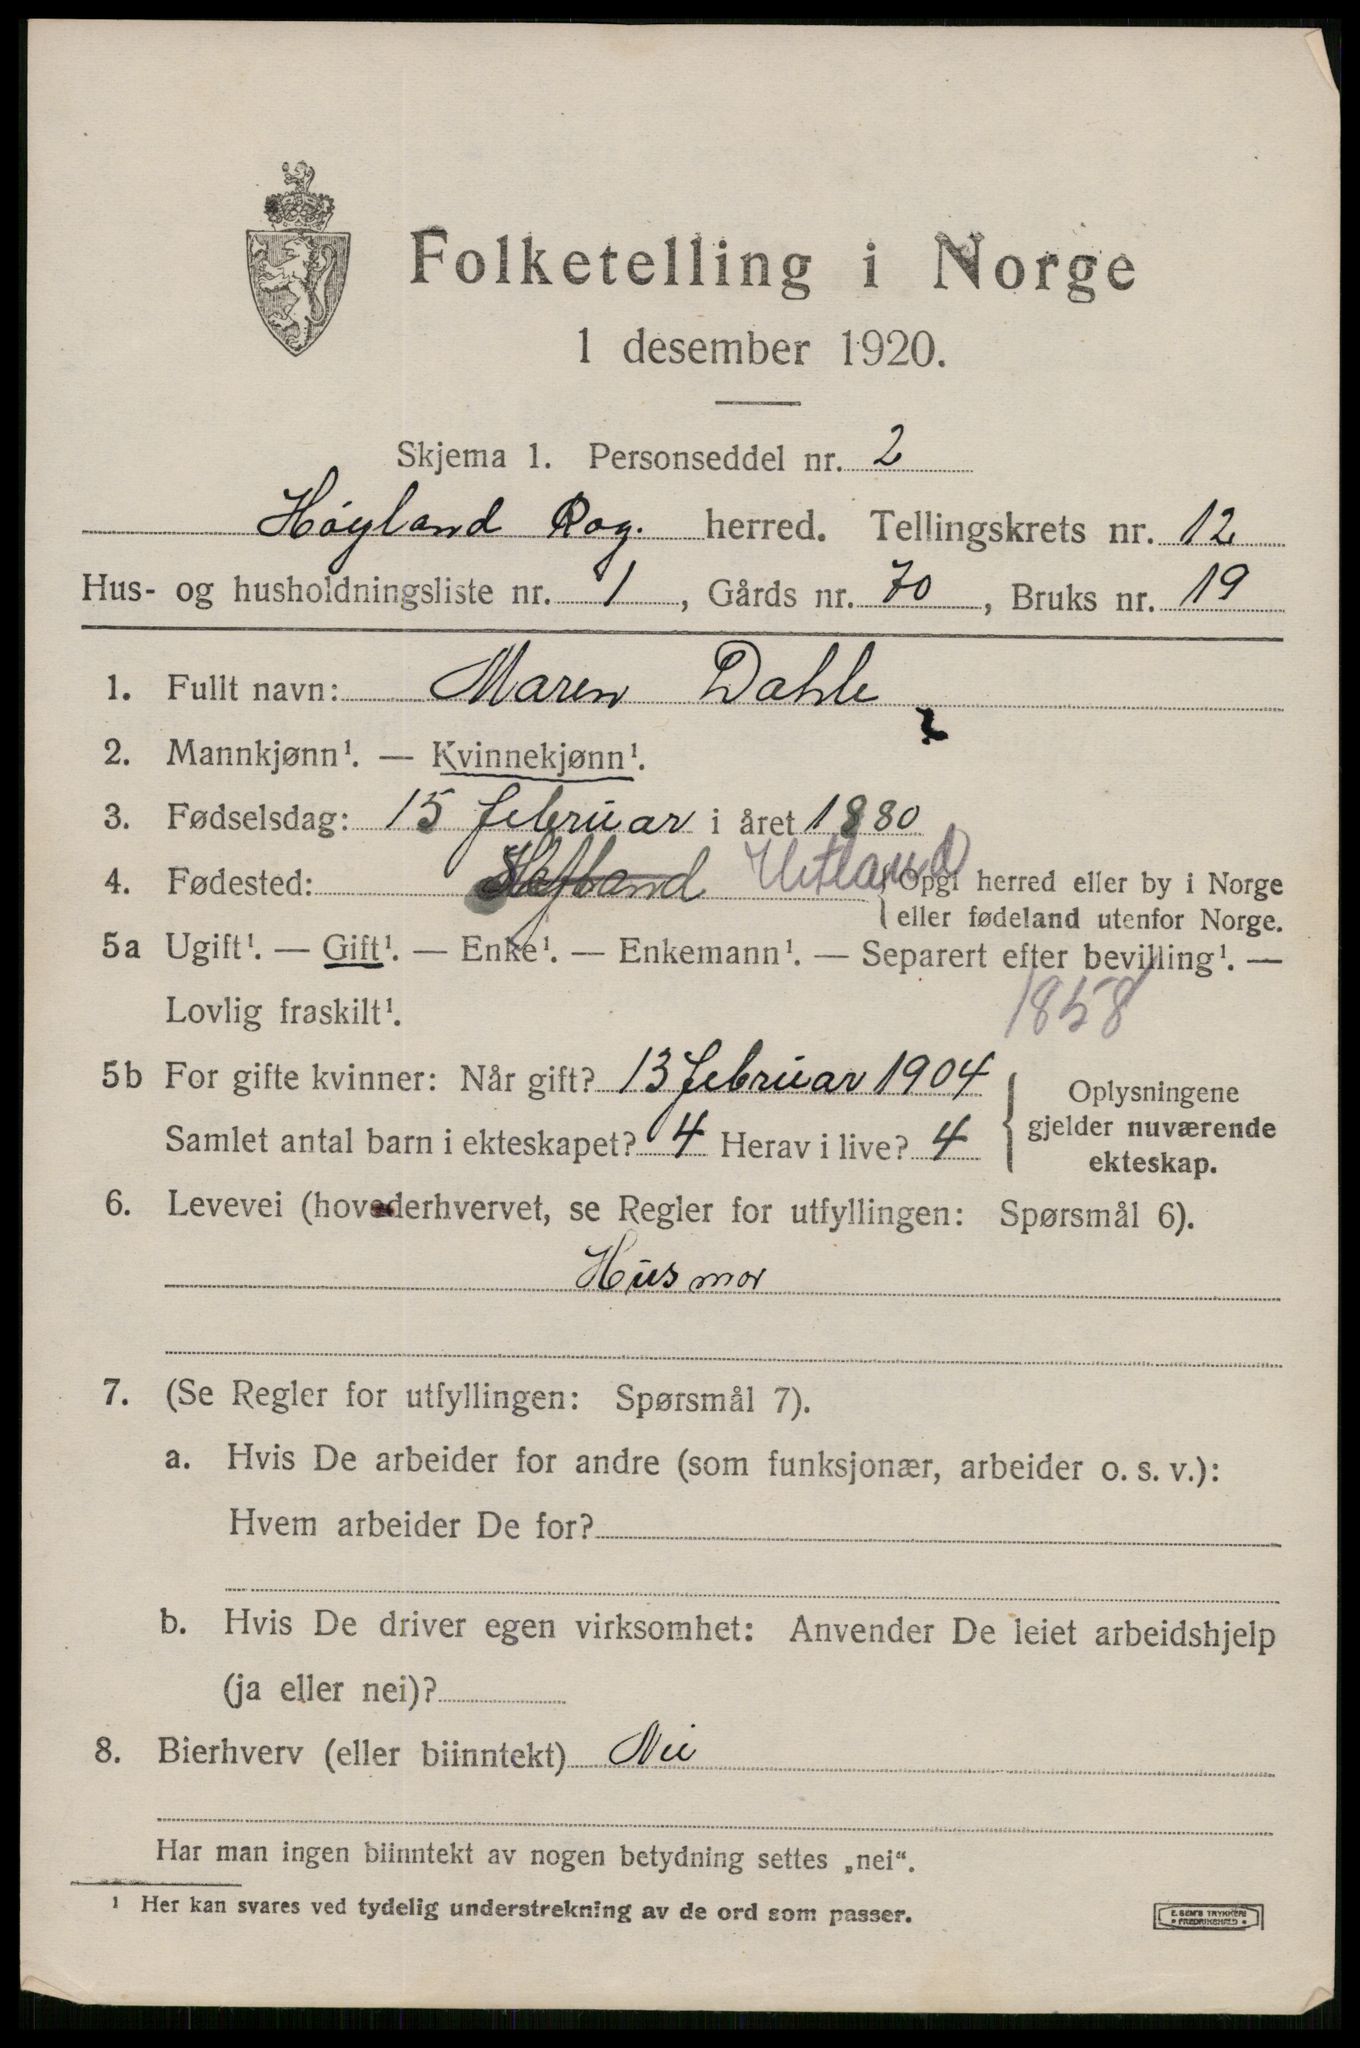 Folketelling i Norge
1 desember 1920.
Skjema 1. Personseddel nr. 2
Høyland Rog. herred. Tellingskrets nr. 12
Hus- og husholdningsliste nr. 1, Gårds nr. 70, Bruks nr. 19
1. Fullt navn: Maren Dahle
2. Mannkjønn¹. — Kvinnekjønn¹.
3. Fødselsdag: 15 februar i året 1880
4. Fødested: Hetland { Opgi herred eller by i Norge
eller fødeland utenfor Norge.
5a Ugift¹. — Gift¹. — Enke¹. — Enkemann¹. — Separert efter bevilling¹. —
Lovlig fraskilt¹. 1858
5b For gifte kvinner: Når gift? 13 februar 1904
Samlet antal barn i ekteskapet? 4 Herav i live? 4
Oplysningene
gjelder nuværende
ekteskap.
6. Levevei (hovederhvervet, se Regler for utfyllingen: Spørsmål 6).
Husmor
7. (Se Regler for utfyllingen: Spørsmål 7).
a. Hvis De arbeider for andre (som funksjonær, arbeider o. s. v.):
Hvem arbeider De for?
b. Hvis De driver egen virksomhet: Anvender De leiet arbeidshjelp
(ja eller nei)?
8. Bierhverv (eller biinntekt) Nei
Har man ingen biinntekt av nogen betydning settes „nei“.
¹ Her kan svares ved tydelig understrekning av de ord som passer.
E. SEM'S TRYKKERI
FREDRIKSHALD